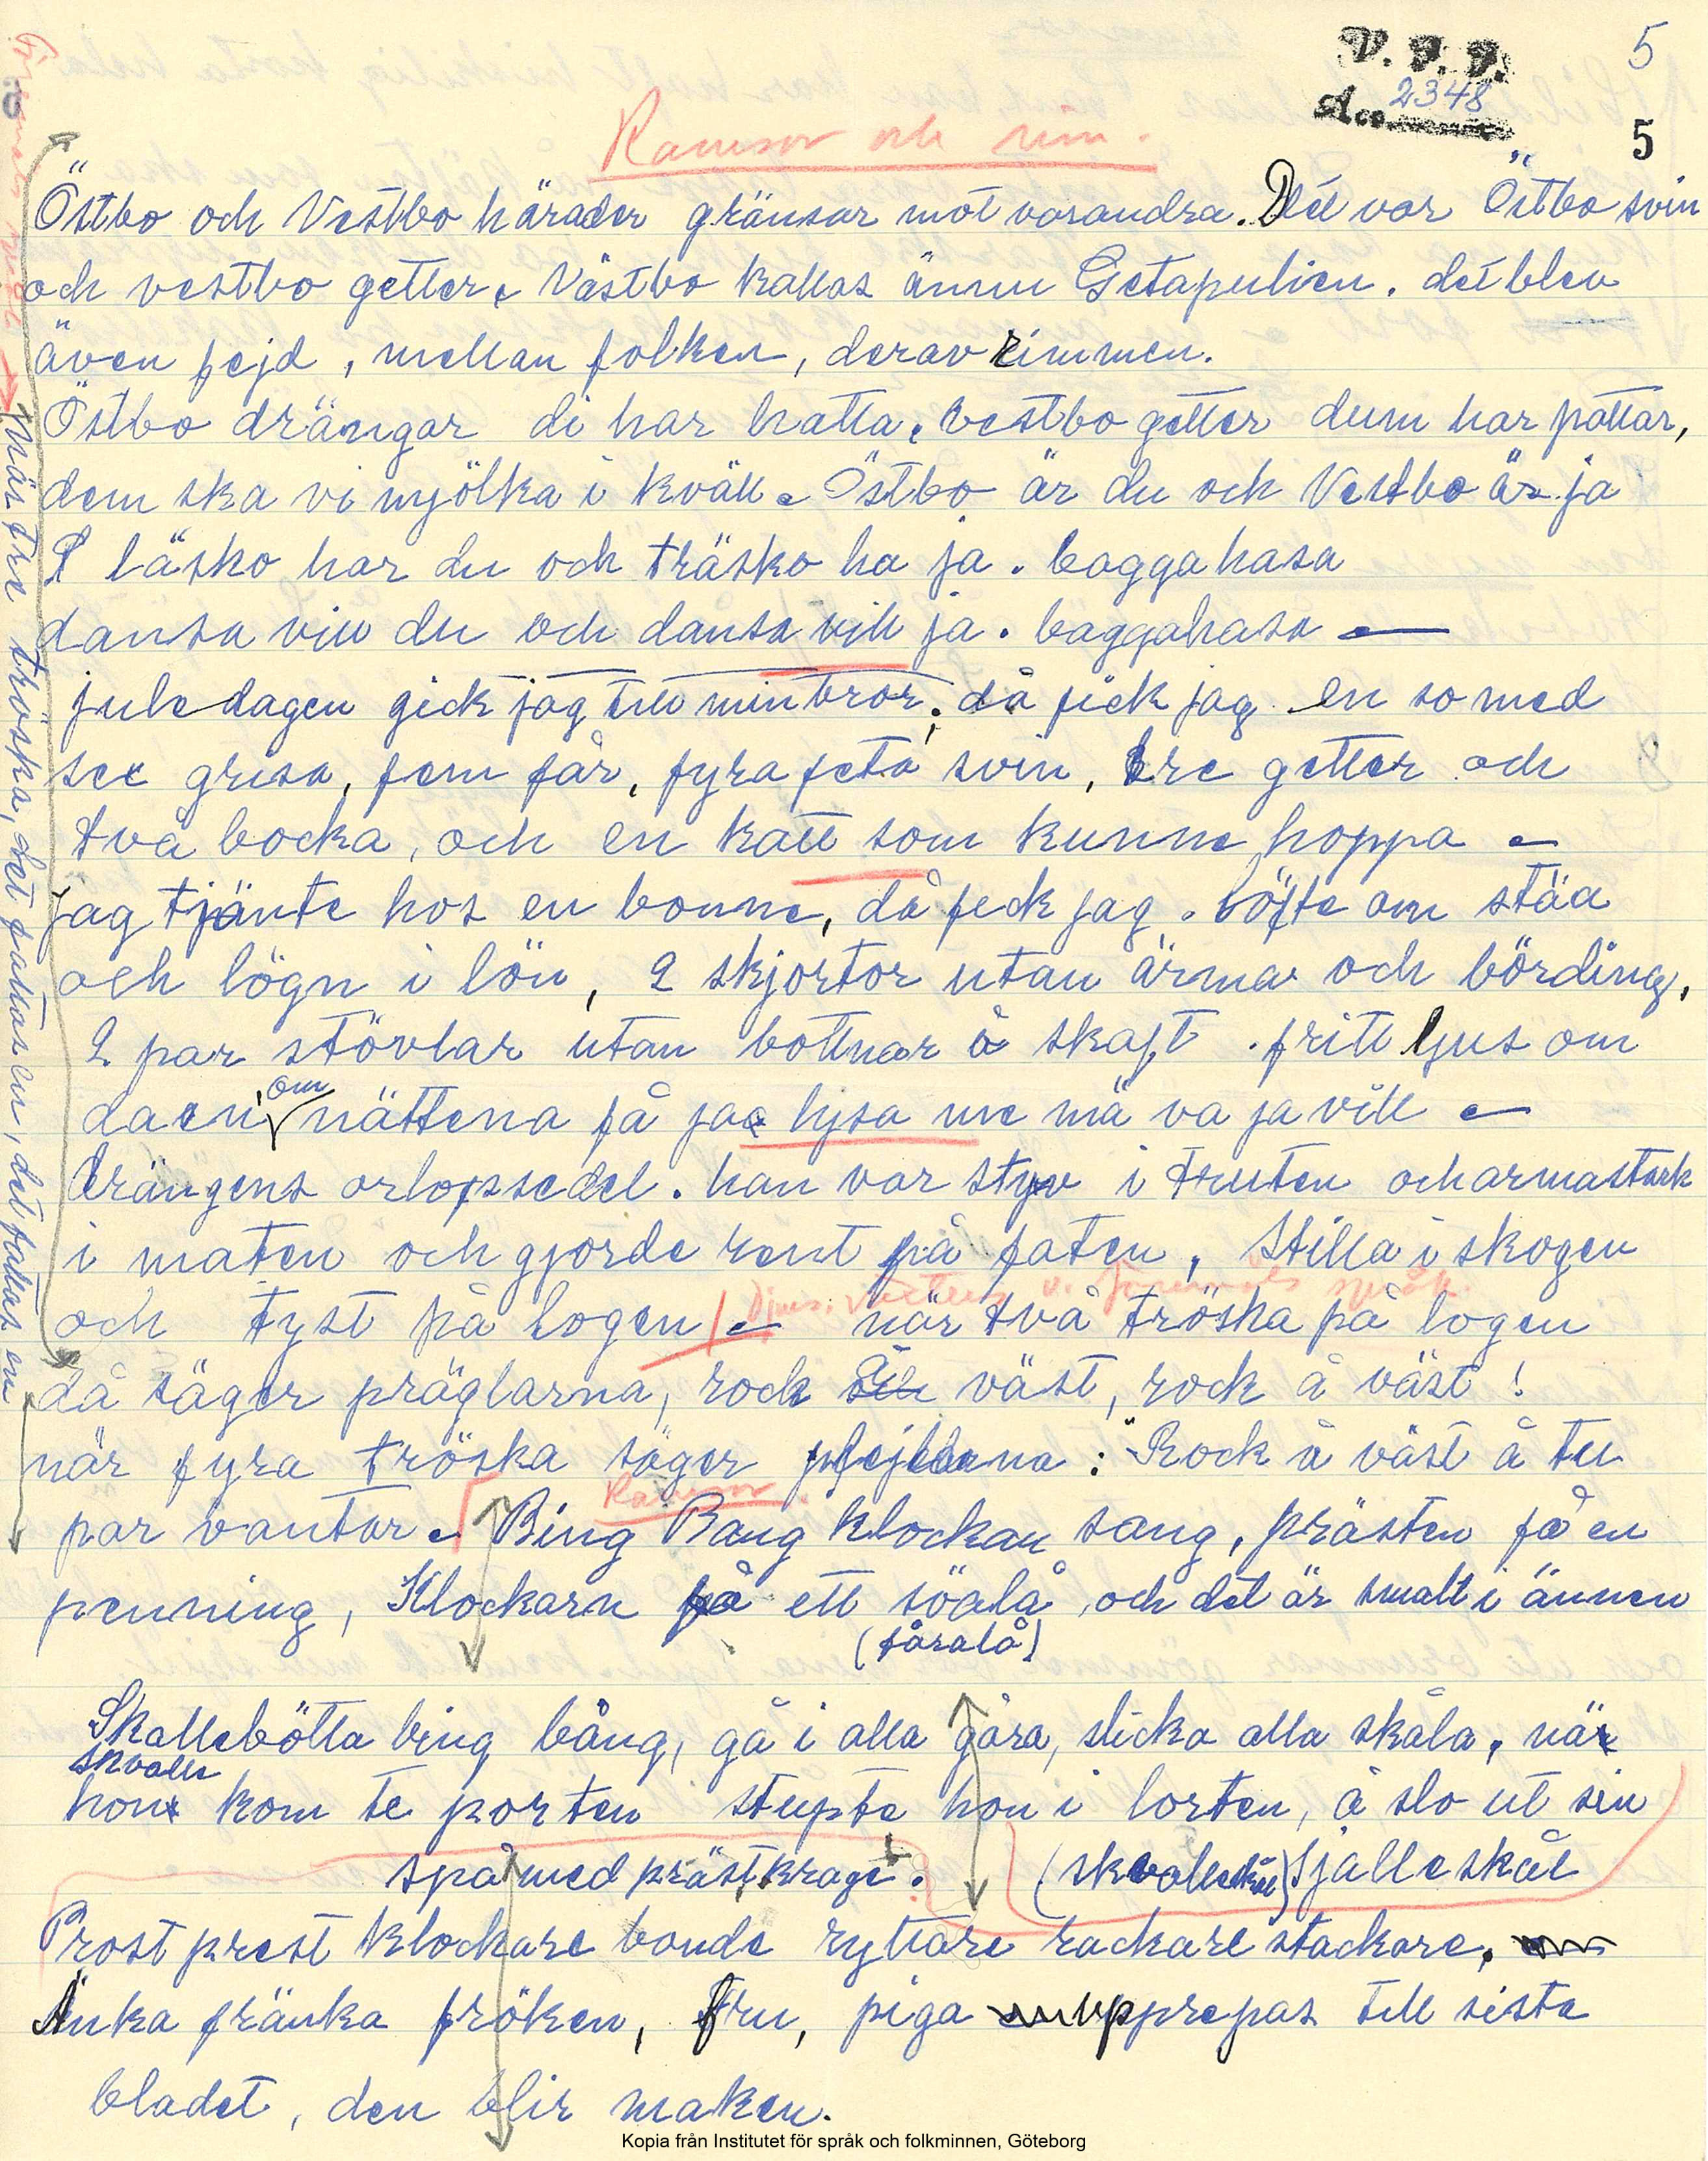 5
V. F. F.
Acc. 2348
5
Ramsor och rim.
Östbo och Vestbo härader gränsar mot varandra. Det var Östbo svin
och vestbo getter. Västbo kallas ännu Getapulien. det blev
även fejd, mellan folken, derav rimmen.
Östbo drängar di har hatta. Vestbo getter dum har pattar,
dem ska vi mjölka i kväll. Östbo är du och Vestbo är ja
läsko har du och träsko ha ja. baggahasa
dansa vill du och dansa vill ja. baggahasa —
juledagen gick jag till min bror, då fick jag en so med
sex grisa, fem får, fyra feta svin, tre getter och
två bocka, och en katt som kunne hoppa —
jag tjänte hos en bonne, då feck jag. löfte om stäa
och lögn i lön, 2 skjortor utan ärmar och börding,
2 par stövlar utan bottnar å skaft. fritt ljus om
daen, om nättena få ja lysa me mä va ja vill —
drängens orlofssedel. han var styv i truten och armastark
i maten och gjorde rent på faten, stilla i skogen
och tyst på logen — när två tröska på logen
då säger präglarna, rock å väst, rock å väst!
när fyra tröska säger plejlarna: "Rock å väst å tu
par vantar. Bing Bang klockan sang, prästen få en
Ramsor.
penning, Klockarn få ett söalå, och det är smalt i ännen
(fåralå)
Skallebötta bing bång, gå i alla gåra, slicka alla skåla, när
skvalle
hon kom te porten stupte hon i lorten, å slo ut sin
(skvalleskål) sjalleskål
spå med prästkrage.
Prost prest klockare bonde ryttare rackare stackare.
Änka fränka fröken, fru, piga upprepas till sista
bladet, den blir maken.
När tre tröska, det fattas en, det fattas en
Kopia från Institutet för språk och folkminnen, Göteborg